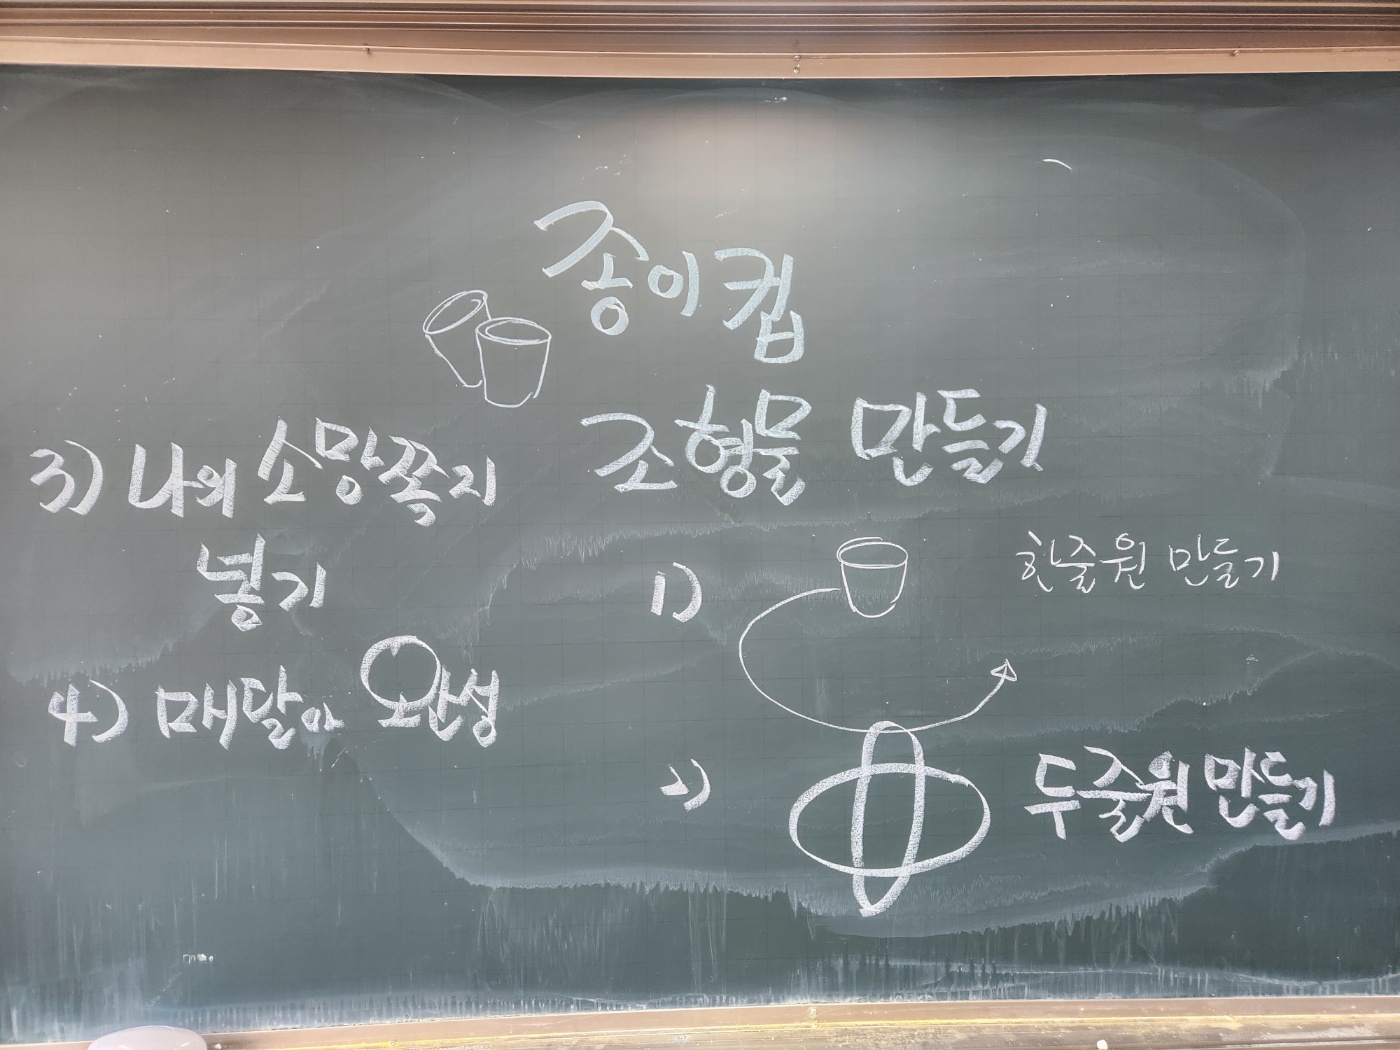 종이컵
조형물 만들기
1) 한줄원 만들기
2) 두줄원 만들기
3) 나의 소망쪽지
넣기
4) 매달아 완성